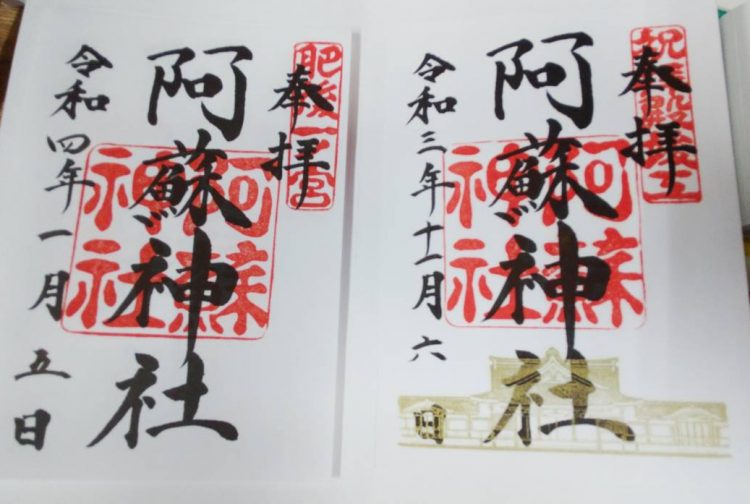 肥後一ノ宮
奉拝
阿蘇神社
阿蘇神社
令和四年一月五日
祝拝殿竣工
奉拝
阿蘇神社
阿蘇神社
令和三年十一月六日